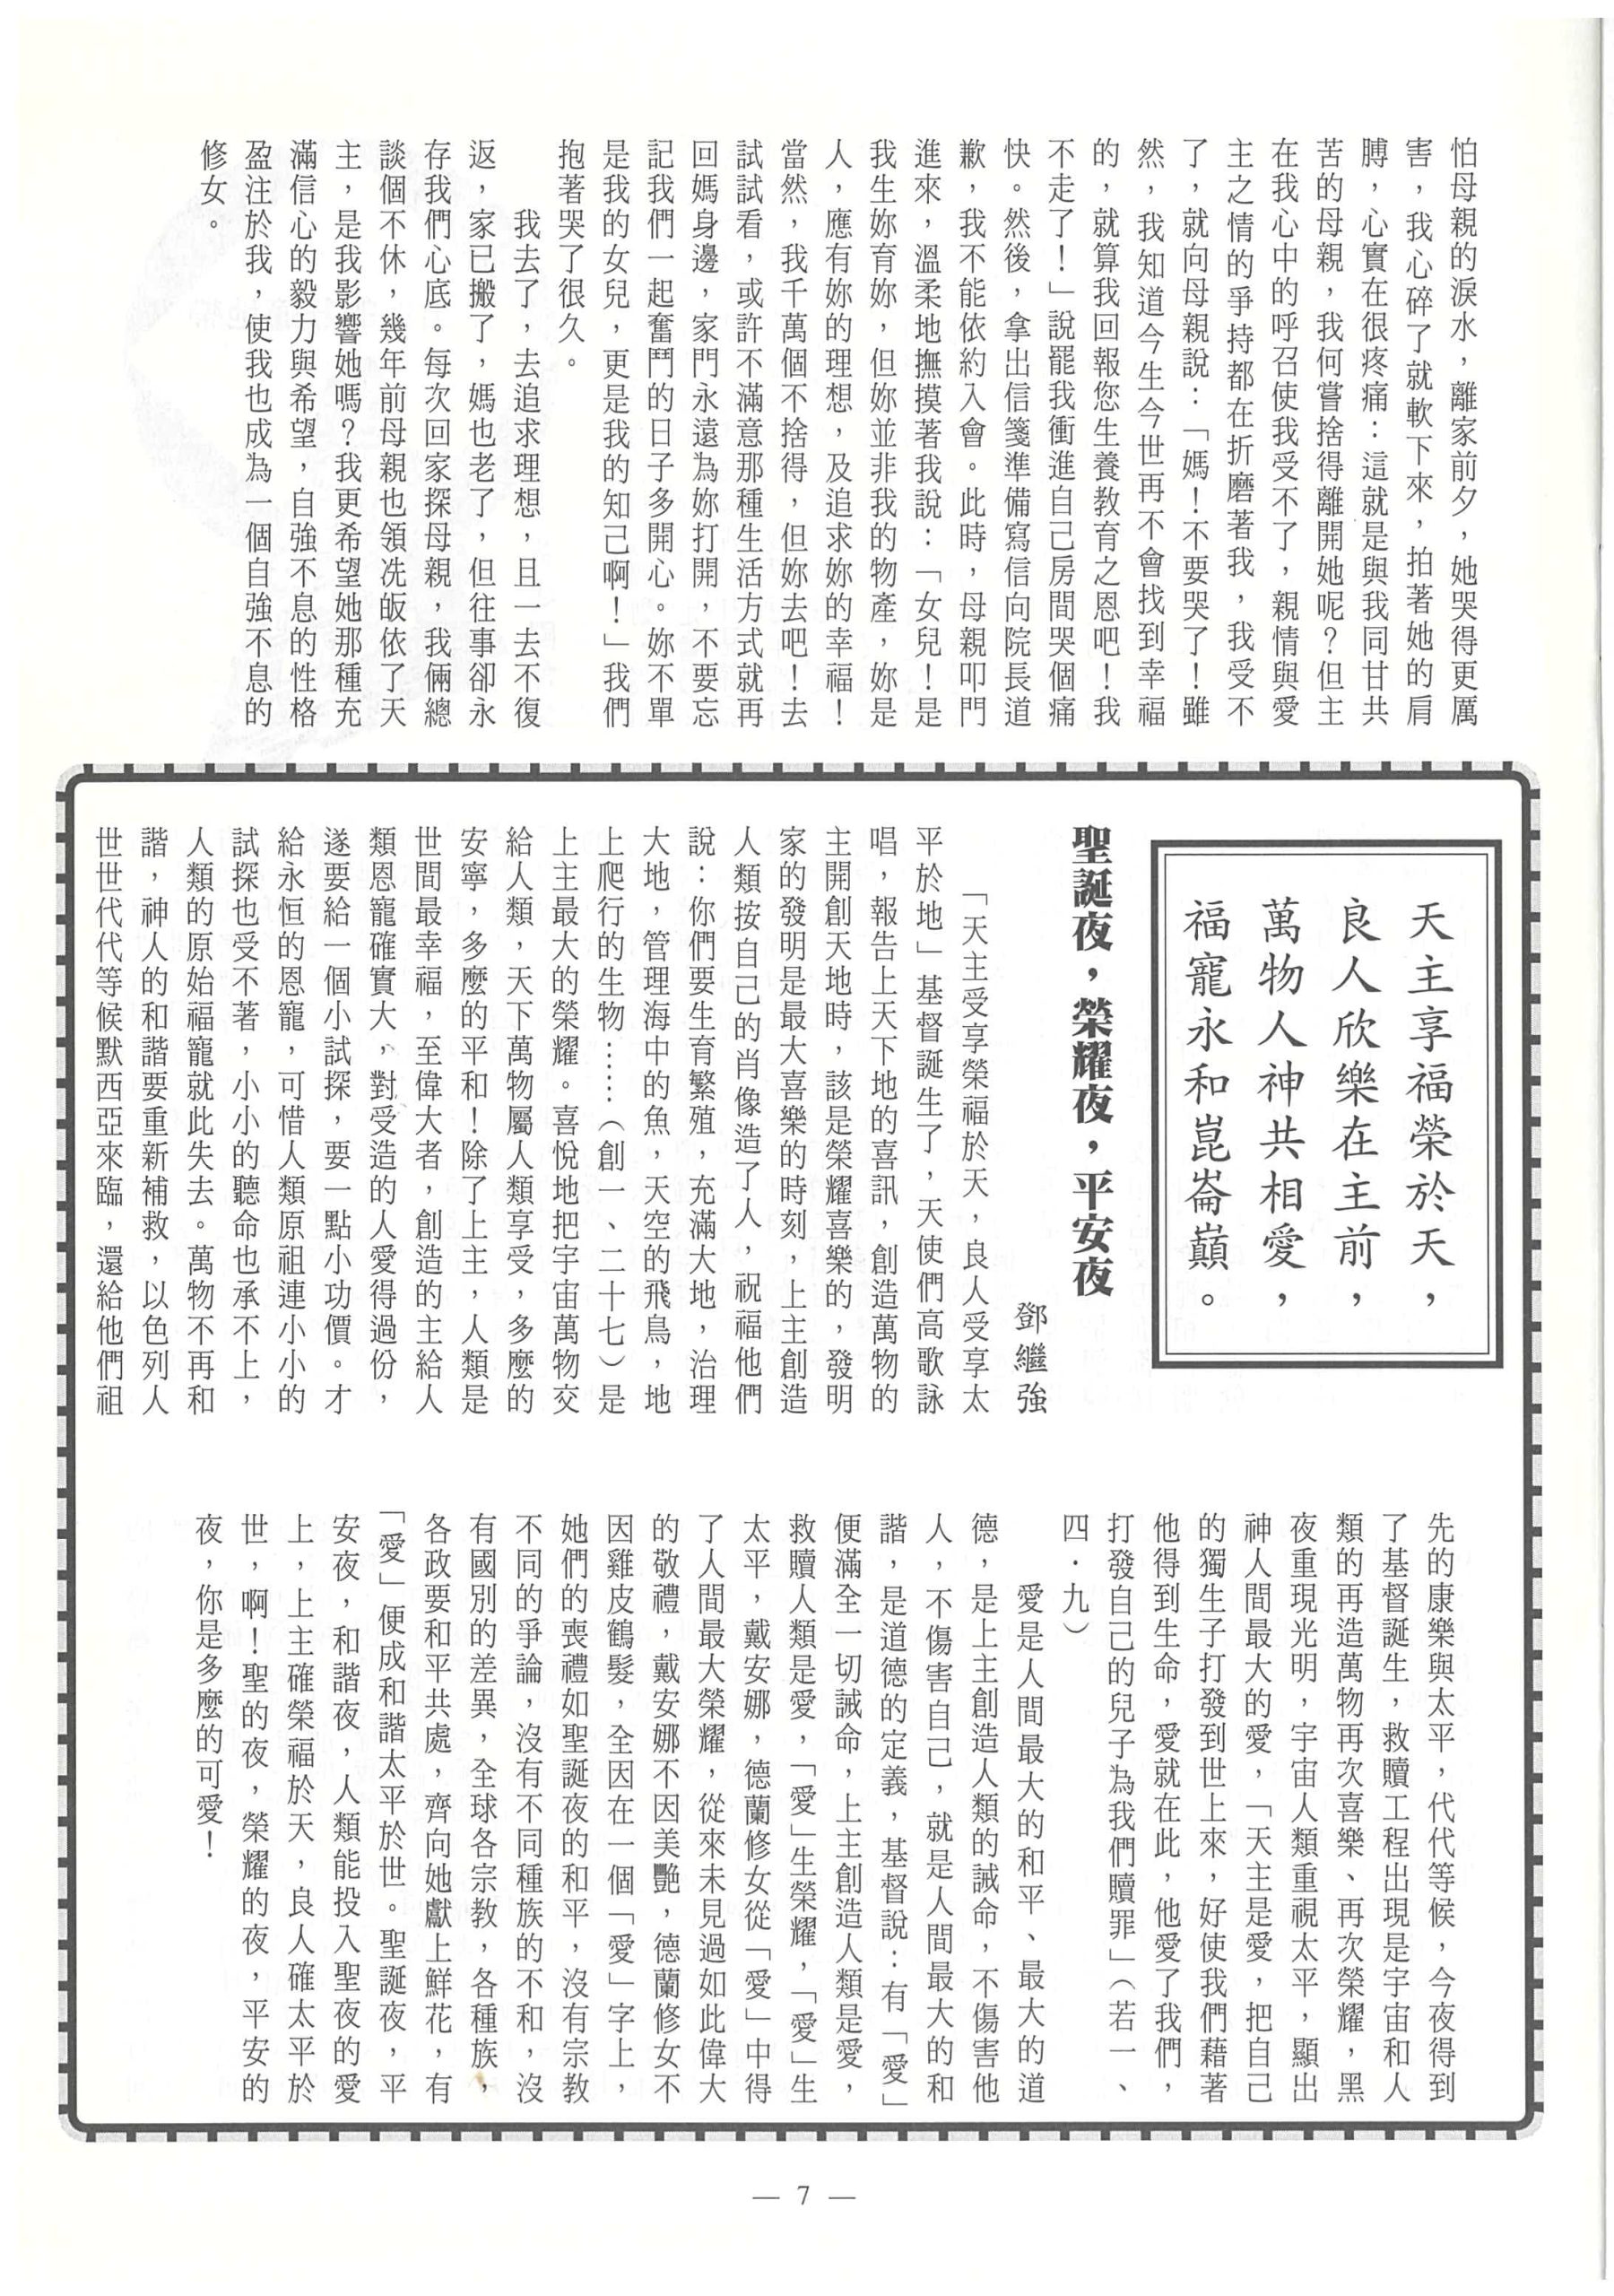 怕母親的淚水，離家前夕，她哭得更厲
害，我心碎了就軟下來，拍著她的肩
膊，心實在很疼痛：這就是與我同甘共
苦的母親，我何嘗捨得離開她呢？但主
在我心中的呼召使我受不了，親情與愛
主之情的爭持都在折磨著我，我受不
了，就向母親說：「媽！不要哭了！雖
然，我知道今生今世再不會找到幸福
的，就算我回報您生養教育之恩吧！我
不走了！」說罷我衝進自己房間哭個痛
快。然後，拿出信箋準備寫信向院長道
歉，我不能依約入會。此時，母親叩門
進來，溫柔地撫摸著我說：「女兒！是
我生妳育妳，但妳並非我的物產，妳是
人，應有妳的理想，及追求妳的幸福！
當然，我千萬個不捨得，但妳去吧！去
試試看，或許不滿意那種生活方式就再
回媽身邊，家門永遠為妳打開，不要忘
記我們一起奮鬥的日子多開心。妳不單
是我的女兒，更是我的知己啊！」我們
抱著哭了很久。
我去了，去追求理想，且一去不復
返，家已搬了，媽也老了，但往事卻永
存我們心底。每次回家探母親，我倆總
談個不休，幾年前母親也領洗皈依了天
主，是我影響她嗎？我更希望她那種充
滿信心的毅力與希望，自強不息的性格
盈注於我，使我也成為一個自強不息的
修女。
天主享福榮於天，
良人欣樂在主前，
萬物人神共相愛，
福寵永和崑崙巔。
聖誕夜，榮耀夜，平安夜
鄧繼強
「天主受享榮福於天，良人受享太
平於地」基督誕生了，天使們高歌詠
唱，報告上天下地的喜訊，創造萬物的
主開創天地時，該是榮耀喜樂的，發明
家的發明是最大喜樂的時刻，上主創造
人類按自己的肖像造了人，祝福他們
說：你們要生育繁殖，充滿大地，治理
大地，管理海中的魚，天空的飛鳥，地
上爬行的生物……（創一、二十七）是
上主最大的榮耀。喜悅地把宇宙萬物交
給人類，天下萬物屬人類享受，多麼的
安寧，多麼的平和！除了上主，人類是
世間最幸福，至偉大者，創造的主給人
類恩寵確實大，對受造的人愛得過份，
遂要給一個小試探，要一點小功價。才
給永恒的恩寵，可惜人類原祖連小小的
試探也受不著，小小的聽命也承不上，
人類的原始福寵就此失去。萬物不再和
諧，神人的和諧要重新補救，以色列人
世世代代等候默西亞來臨，還給他們祖
先的康樂與太平，代代等候，今夜得到
了基督誕生，救贖工程出現是宇宙和人
類的再造萬物再次喜樂、再次榮耀，黑
夜重現光明，宇宙人類重視太平，顯出
神人間最大的愛，「天主是愛，把自己
的獨生子打發到世上來，好使我們藉著
他得到生命，愛就在此，他愛了我們，
打發自己的兒子為我們贖罪」（若一、
四．九）
愛是人間最大的和平、最大的道
德，是上主創造人類的誡命，不傷害他
人，不傷害自己，就是人間最大的和
諧，是道德的定義，基督說：有「愛」
便滿全一切誡命，上主創造人類是愛，
救贖人類是愛，「愛」生榮耀，「愛」生
太平，戴安娜，德蘭修女從「愛」中得
了人間最大榮耀，從來未見過如此偉大
的敬禮，戴安娜不因美艷，德蘭修女不
因雞皮鶴髮，全因在一個「愛」字上，
她們的喪禮如聖誕夜的和平，沒有宗教
不同的爭論，沒有不同種族的不和，沒
有國別的差異，全球各宗教，各種族，
各政要和平共處，齊向她獻上鮮花，有
「愛」便成和諧太平於世。聖誕夜，平
安夜，和諧夜，人類能投入聖夜的愛
上，上主確榮福於天，良人確太平於
世，啊！聖的夜，榮耀的夜，平安的
夜，你是多麼的可愛！
— 7 —